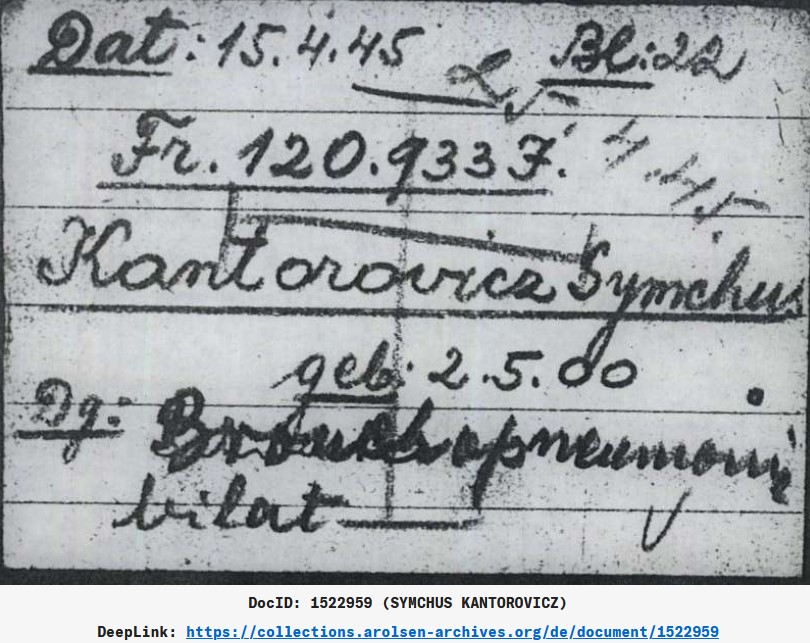 Dat: 15.4.45 Bl: 22
25. 4. 45.
Fr. 120.933 F.
Kantorovicz Symchus
geb. 2.5.00
Dg: Bronchopneumonie
bilat
DocID: 1522959 (SYMCHUS KANTOROVICZ)
DeepLink: https://collections.arolsen-archives.org/de/document/1522959